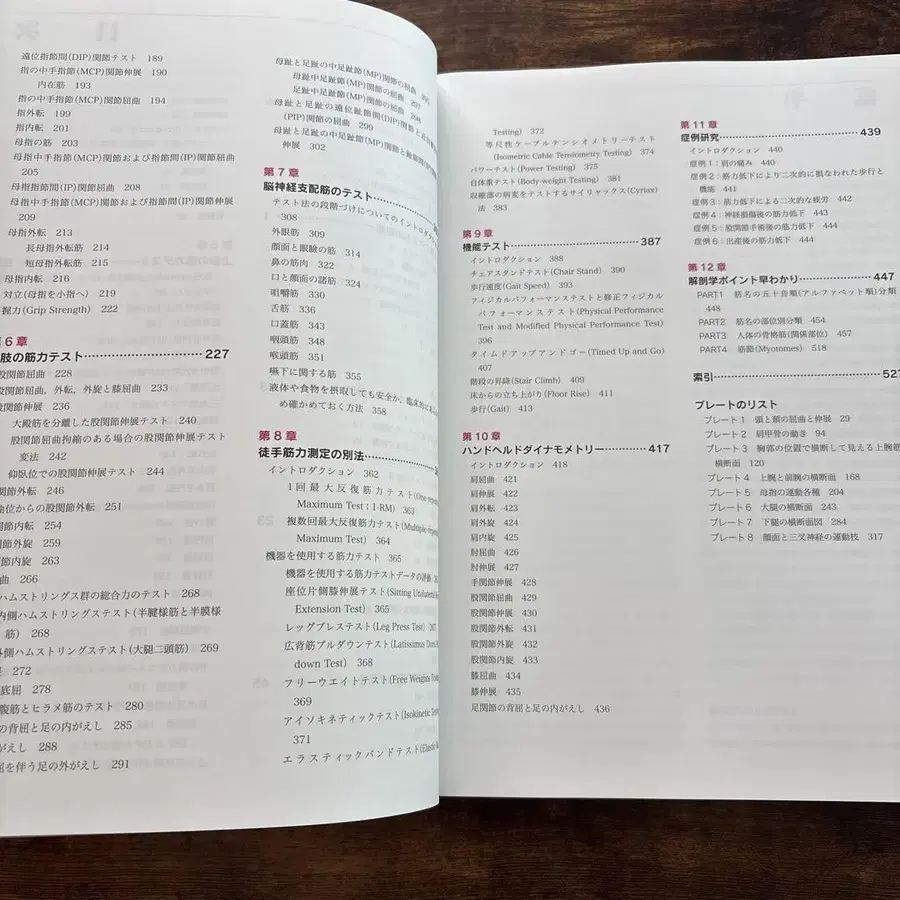 遠位指節間(DIP)関節テスト 189
指の中手指節(MCP)関節伸展 190
内在筋 193
指の中手指節(MCP)関節屈曲 194
指外転 199
指内転 201
母指の筋 203
母指中手指節(MCP)関節および指節間(IP)関節屈曲
205
母指指節間(IP)関節屈曲 208
母指中手指節(MCP)関節および指節間(IP)関節伸展
209
母指外転 213
長母指外転筋 214
短母指外転筋 215
母指内転 216
対立(母指を小指へ) 219
握力(Grip Strength) 222
6章
肢の筋力テスト 227
股関節屈曲 228
股関節屈曲、外転、外旋と膝屈曲 233
股関節伸展 236
大殿筋を分離した股関節伸展テスト 240
股関節屈曲拘縮のある場合の股関節伸展テスト
変法 242
仰臥位での股関節伸展テスト 244
関節外転 246
位からの股関節外転 253
関節内転 254
関節外旋 259
関節内旋 263
曲 266
ハムストリングス群の総合力のテスト 268
内側ハムストリングステスト(半腱様筋と半膜様
筋) 268
外側ハムストリングステスト(大腿二頭筋) 269
272
底屈 278
腹筋とヒラメ筋のテスト 280
の背屈と足の内がえし 285
がえし 288
屈を伴う足の外がえし 291
母趾と足趾の中足趾節(MP)関節の屈曲 295
母趾中足趾節(MP)関節の屈曲 297
足趾中足趾節(MP)関節の屈曲 298
母趾と足趾の遠位趾節間(DIP)関節と近位
(PIP)関節の屈曲 299
母趾と足趾の中足趾節(MP)関節と趾節間(IP)
伸展 302
第7章
脳神経支配筋のテスト
テスト法の段階づけについてのイントロダク
308
外眼筋 309
顔面と眼瞼の筋 314
鼻の筋肉 322
口と顔面の諸筋 324
咀嚼筋 330
舌筋 336
口蓋筋 343
咽頭筋 348
喉頭筋 351
嚥下に関する筋 355
液体や食物を摂取しても安全か、臨床的に
め確かめておく方法 358
第8章
徒手筋力測定の別法
イントロダクション 362
1回最大反復筋力テスト(One-repe
Maximum Test;1-RM) 363
複数回最大反復筋力テスト(Multiple-repe
Maximum Test) 364
機器を使用する筋力テスト 365
機器を使用する筋力テストデータの評価
座位片側膝伸展テスト(Sitting Unilateral
Extension Test) 365
レッグプレステスト(Leg Press Test) 367
広背筋プルダウンテスト(Latissimus Dorsi
down Test) 368
フリーウエイトテスト(Free Weights Test
369
アイソキネティックテスト(Isokinetic Te
371
エラスティックバンドテスト(Elastic
Testing) 372
等尺性ケーブルテンシオメトリーテスト
(Isometric Cable Tensiometry Testing) 374
パワーテスト(Power Testing) 375
自体重テスト(Body-weight Testing) 381
収縮部の病変をテストするサイリャックス(Cyriax)
法 383
第9章
機能テスト 387
イントロダクション 388
チェアスタンドテスト(Chair Stand) 390
歩行速度(Gait Speed) 393
フィジカルパフォーマンステストと修正フィジカル
パフォーマンステスト(Physical Performance
Test and Modified Physical Performance Test)
396
タイムドアップアンドゴー(Timed Up and Go)
407
階段の昇降(Stair Climb) 409
床からの立ち上がり(Floor Rise) 411
歩行(Gait) 413
第10章
ハンドヘルドダイナモメトリー 417
イントロダクション 418
肩屈曲 421
肩伸展 422
肩外転 423
肩外旋 424
肩内旋 425
肘屈曲 426
肘伸展 427
手関節伸展 428
股関節屈曲 429
股関節伸展 430
股関節外転 431
股関節外旋 432
股関節内旋 433
膝屈曲 434
膝伸展 435
足関節の背屈と足の内がえし 436
第11章
症例研究 439
イントロダクション 440
症例1:肩の痛み 440
症例2:筋力低下により二次的に損なわれた歩行と
機能 441
症例3:筋力低下による二次的な疲労 442
症例4:神経損傷後の筋力低下 443
症例5:股関節手術後の筋力低下 444
症例6:出産後の筋力低下 444
第12章
解剖学ポイント早わかり 447
PART1 筋名の五十音順(アルファベット順)分類
448
PART2 筋名の部位別分類 454
PART3 人体の骨格筋(関係部位) 457
PART4 筋節(Myotomes) 518
索引 527
プレートのリスト
プレート1 頭と頸の屈曲と伸展 29
プレート2 肩甲骨の動き 94
プレート3 胸郭の位置で横断して見える上腕筋
横断面 120
プレート4 上腕と前腕の横断面 164
プレート5 母指の運動各種 204
プレート6 大腿の横断面 243
プレート7 下腿の横断面図 284
プレート8 顔面と三叉神経の運動枝 317